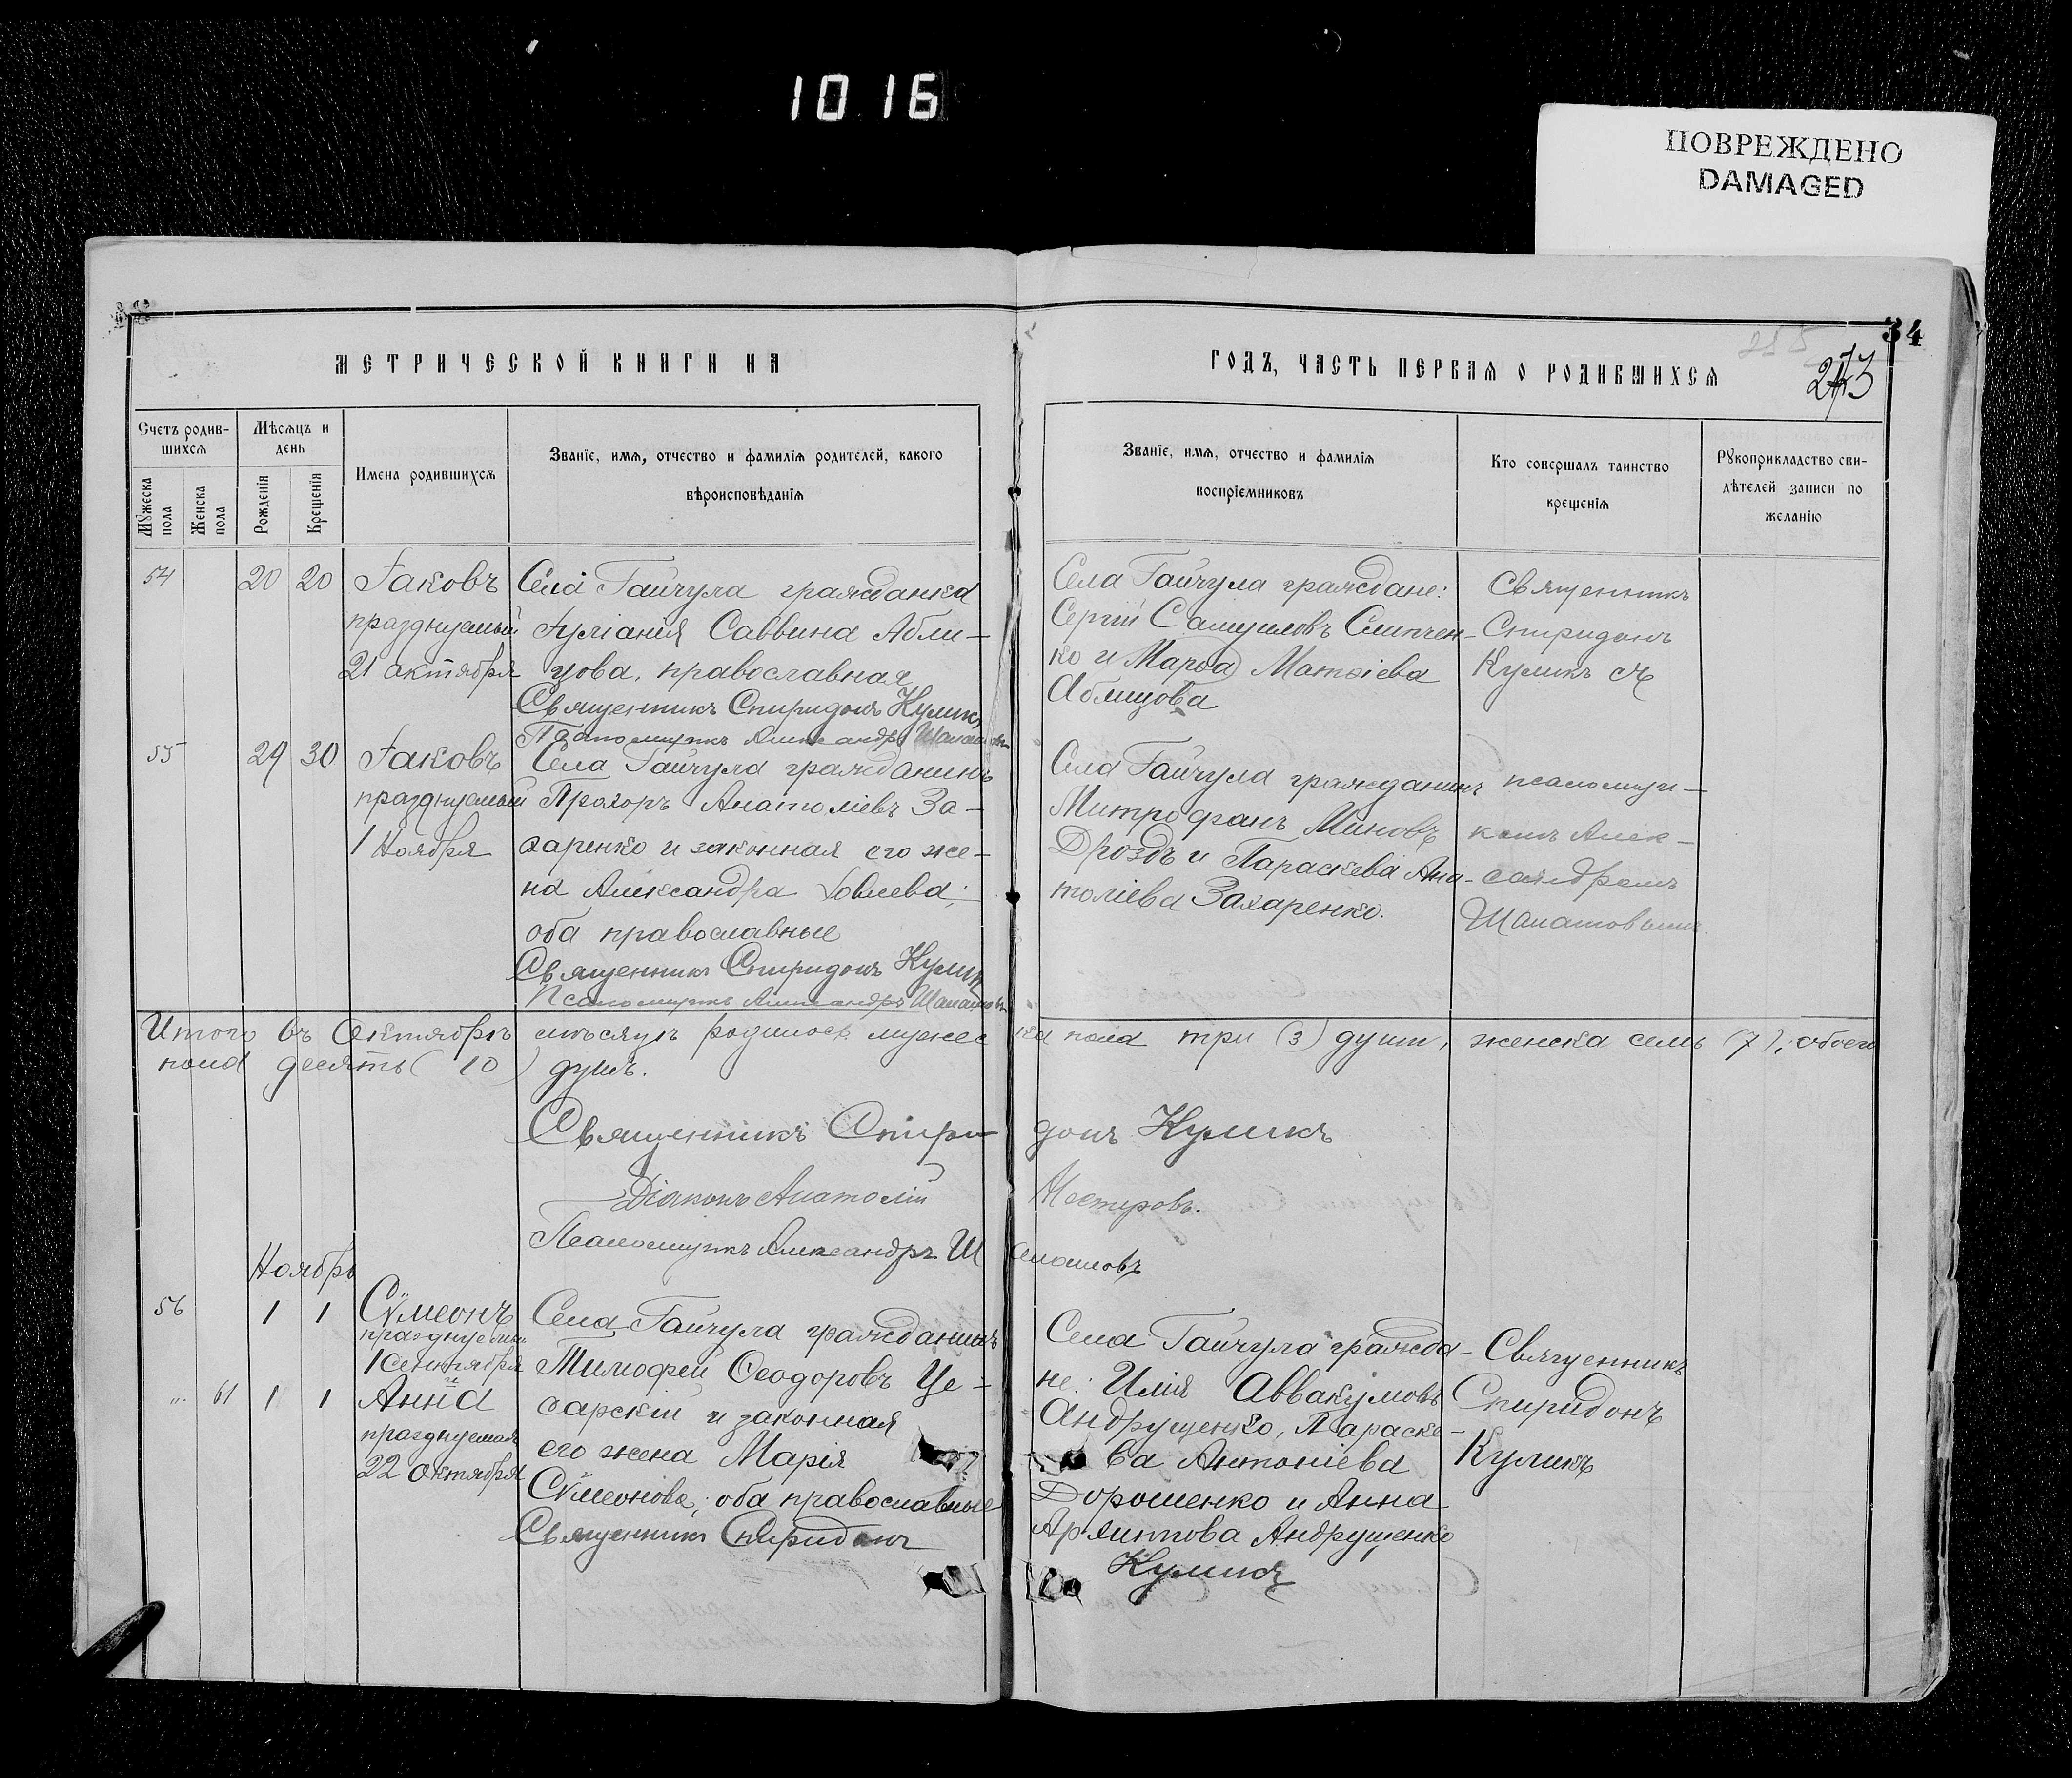 10 16
ПОВРЕЖДЕНО
DAMAGED
34
МЕТРИЧЕСКОЙ КНИГИ НА
ГОДЪ, ЧАСТЬ ПЕРВАЯ О РОДИВШИХСЯ
Счетъ родив-
шихся
Мѣсяцъ и
день
Мужеска
пола
Женска
пола
Рожденія
Крещенія
Имена родившихся
Званіе, имя, отчество и фамилія родителей, какого
вѣроисповѣданія
Званіе, имя, отчество и фамилія
воспріемниковъ
Кто совершалъ таинство
крещенія
Рукоприкладство сви-
дѣтелей записи по
желанію
54
20 20
Іаковъ
празднуемый
21 октября
Села Гайчула гражданка
Іуліанія Саввина Абли-
цова, православная
Священникъ Спиридонъ Куликъ
Псаломщикъ Александръ Шаматовъ
Села Гайчула граждане:
Сергій Самуиловъ Слипчен-
ко и Марѳа Матѳіева
Аблицова
Священникъ
Спиридонъ
Куликъ
55
29 30
Іаковъ
празднуемый
1 Ноября
Села Гайчула гражданинъ
Прохоръ Анатоліевъ За-
харенко и законная его же-
на Александра Іовлева;
оба православные
Священникъ Спиридонъ Куликъ
Псаломщикъ Александръ Шаматовъ
Села Гайчула гражданинъ
Митрофанъ Миновъ
Дроздъ и Параскева Ана-
толіева Захаренко.
псаломщи-
комъ Алек-
сандромъ
Шаматовымъ
Итого въ Октябрѣ мѣсяцѣ родилось мужеска пола три (3) души, женска семь (7), обоего
пола десять (10) душъ.
Священникъ Спиридонъ Куликъ
Діаконъ Анатолій Нестеровъ.
Псаломщикъ Александръ Шаматовъ
Ноябрь
56
1 1
Сѵмеонъ
празднуемый
1 Сентября
и
61
1 1
Анна
празднуемая
22 Октября
Села Гайчула гражданинъ
Тимофей Ѳеодоровъ Це-
сарскій и законная
его жена Марія
Сѵмеонова; оба православные
Священникъ Спиридонъ
Села Гайчула гражда-
не: Илія Аввакумовъ
Андрущенко, Параске-
ва Антоніева
Дорошенко и Анна
Андрущенко
Куликъ
Священникъ
Спиридонъ
Куликъ